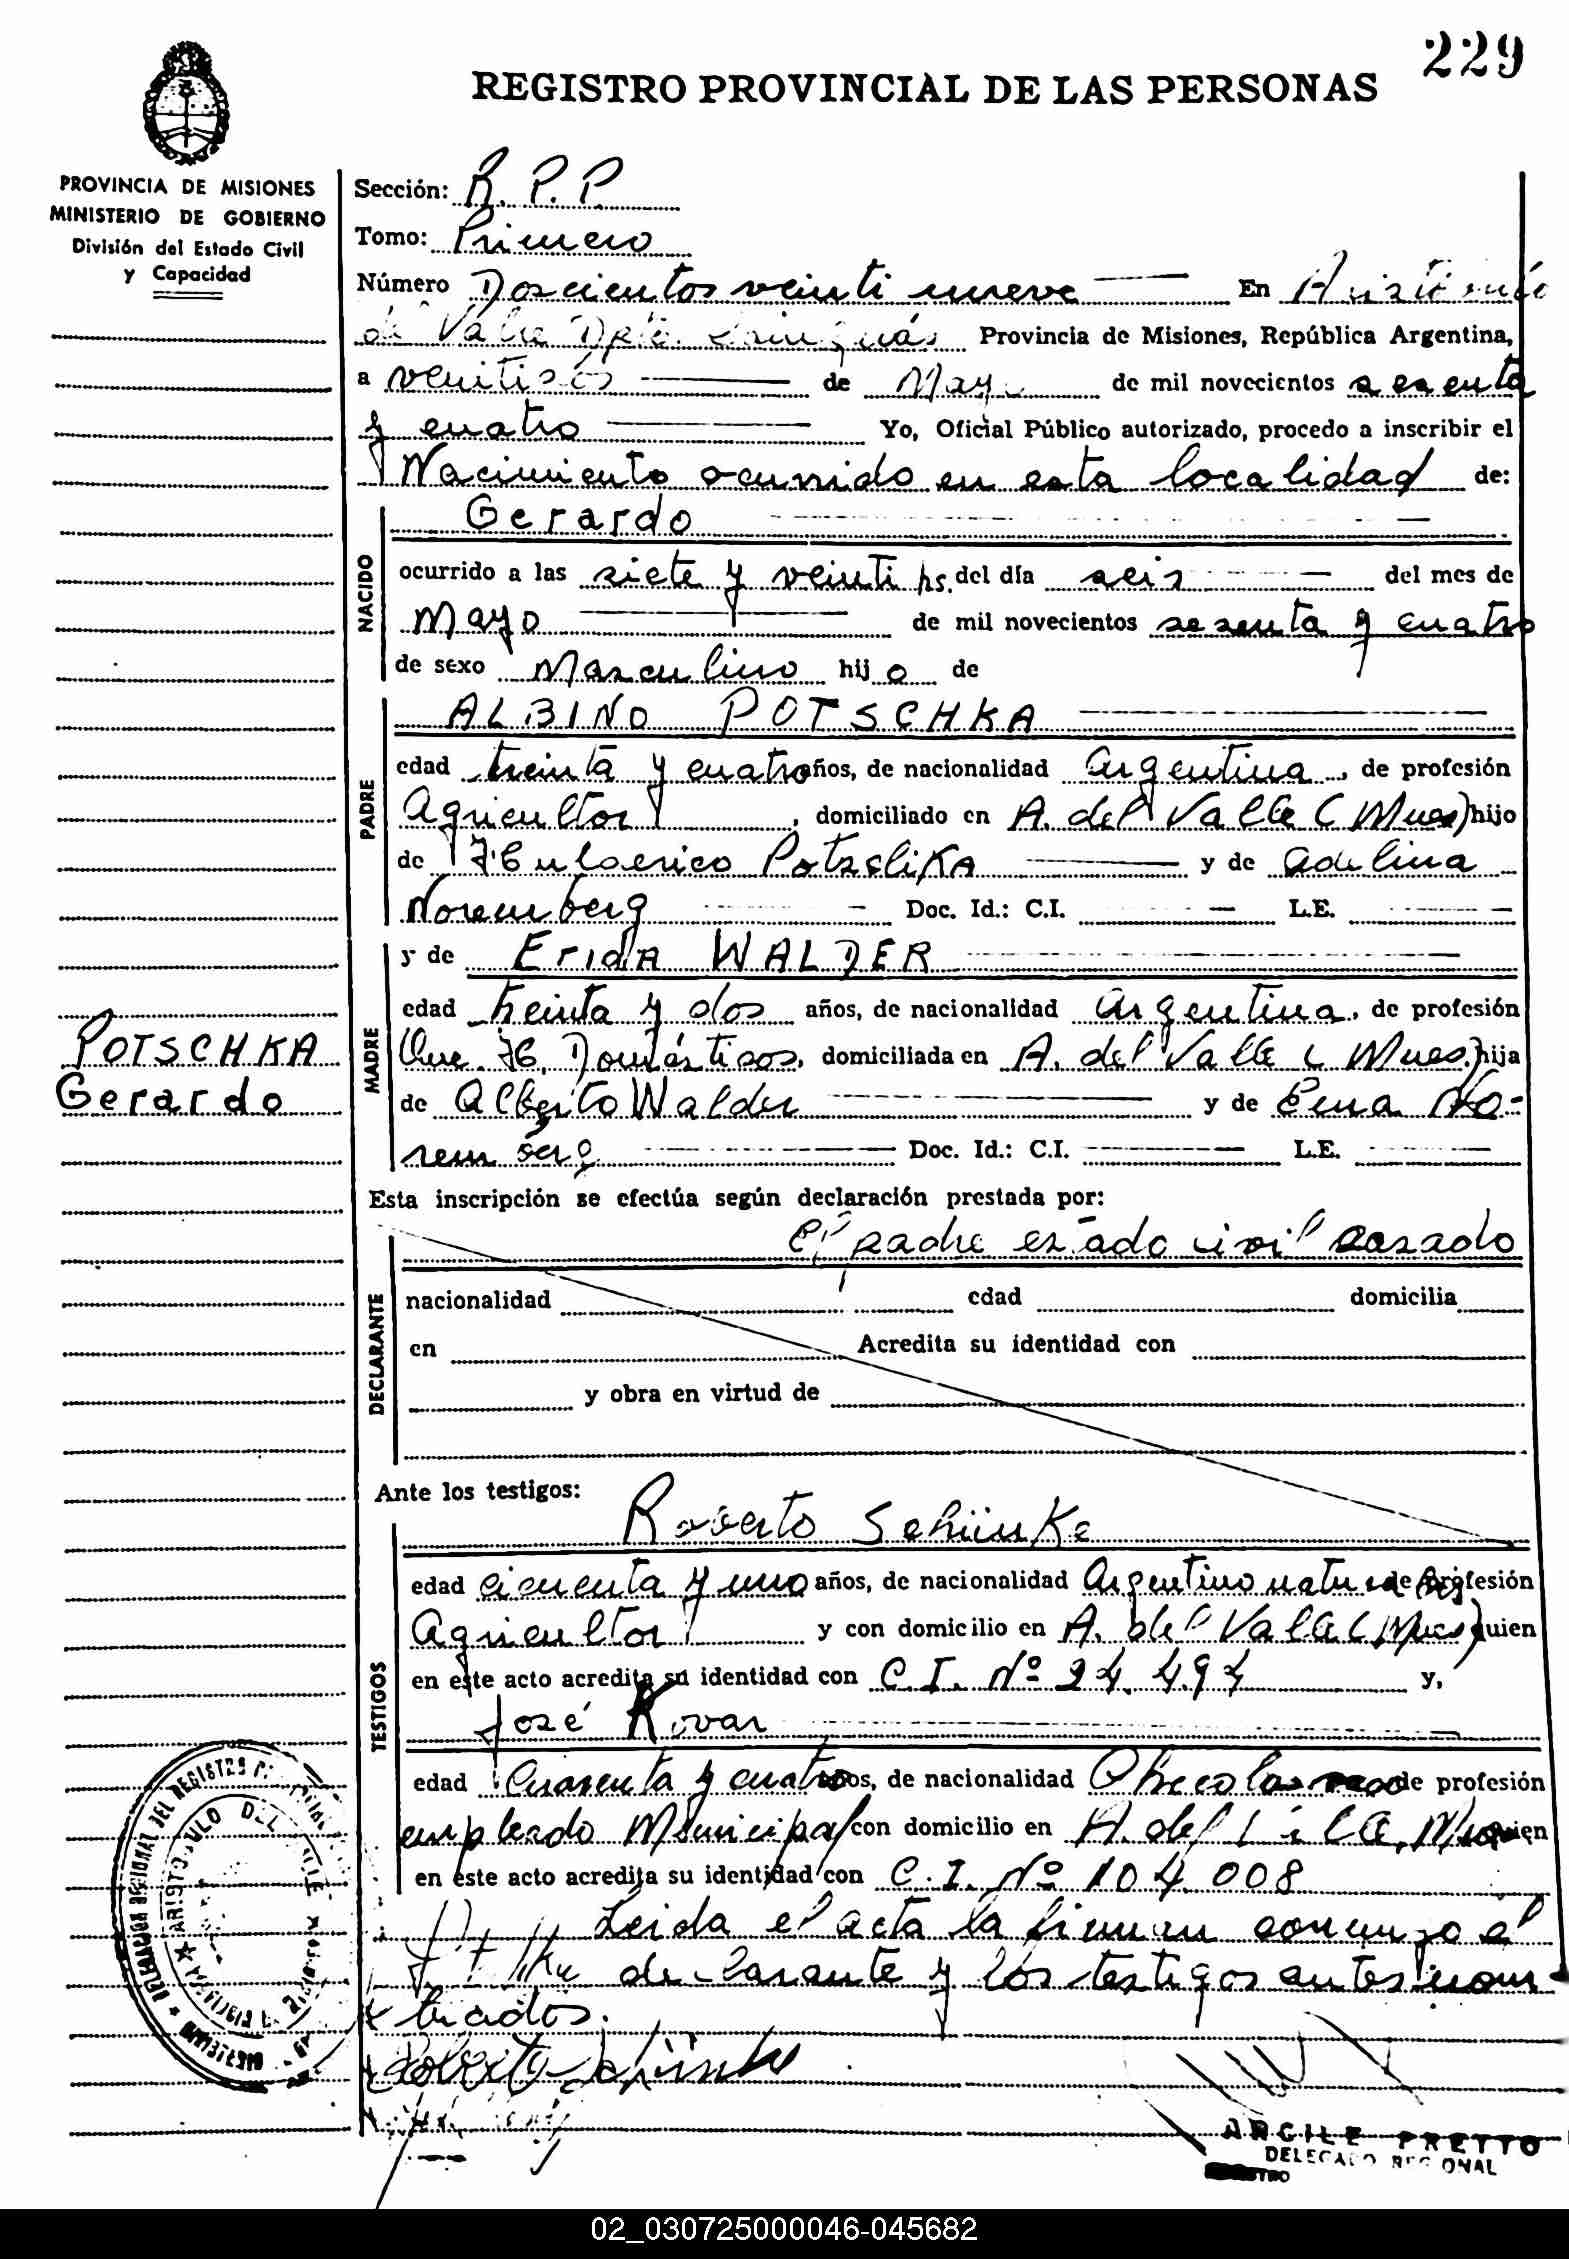 229
REGISTRO PROVINCIAL DE LAS PERSONAS
PROVINCIA DE MISIONES
MINISTERIO DE GOBIERNO
División del Estado Civil
y Capacidad
Sección: R. P. P.
Tomo: Primero
Número Doscientos veinti nueve En
Provincia de Misiones, República Argentina,
a de Mayo de mil novecientos sesenta
y cuatro Yo, Oficial Público autorizado, procedo a inscribir el
Nacimiento ocurrido en esta localidad de:
NACIDO
Gerardo
ocurrido a las siete y veinti hs. del día seis del mes de
Mayo de mil novecientos sesenta y cuatro
de sexo Masculino hijo de
PADRE
ALBINO POTSCHKA
edad treinta y cuatro años, de nacionalidad Argentina, de profesión
Agricultor, domiciliado en A. del Valle (Mnes) hijo
de y de Adelina
Noremberg Doc. Id.: C.I. L.E.
MADRE
y de Erida WALDER
edad treinta y dos años, de nacionalidad Argentina, de profesión
Que. H. Domésticos, domiciliada en A. del Valle (Mnes.) hija
de Alberto Walder y de No-
remberg Doc. Id.: C.I. L.E.
POTSCHKA
Gerardo
Esta inscripción se efectúa según declaración prestada por:
DECLARANTE
El padre estado civil casado
nacionalidad edad domicilia
en Acredita su identidad con
y obra en virtud de
Ante los testigos:
TESTIGOS
Roberto Schünke
edad cicuenta y uno años, de nacionalidad Argentino de profesión
Agricultor y con domicilio en A. del Valle (Mnes) quien
en este acto acredita su identidad con C.I. Nº 24.494 y,
José Kovar
edad Cuarenta y cuatro años, de nacionalidad de profesión
empleado Municipal con domicilio en A. del quien
en este acto acredita su identidad con C.I. Nº 104.008
Leida el acta la firman conmigo el
declarante y los testigos antes nom-
brados.
Roberto Schünke
ARGILE PRETTO
DELEGADO REGIONAL
02_030725000046-045682